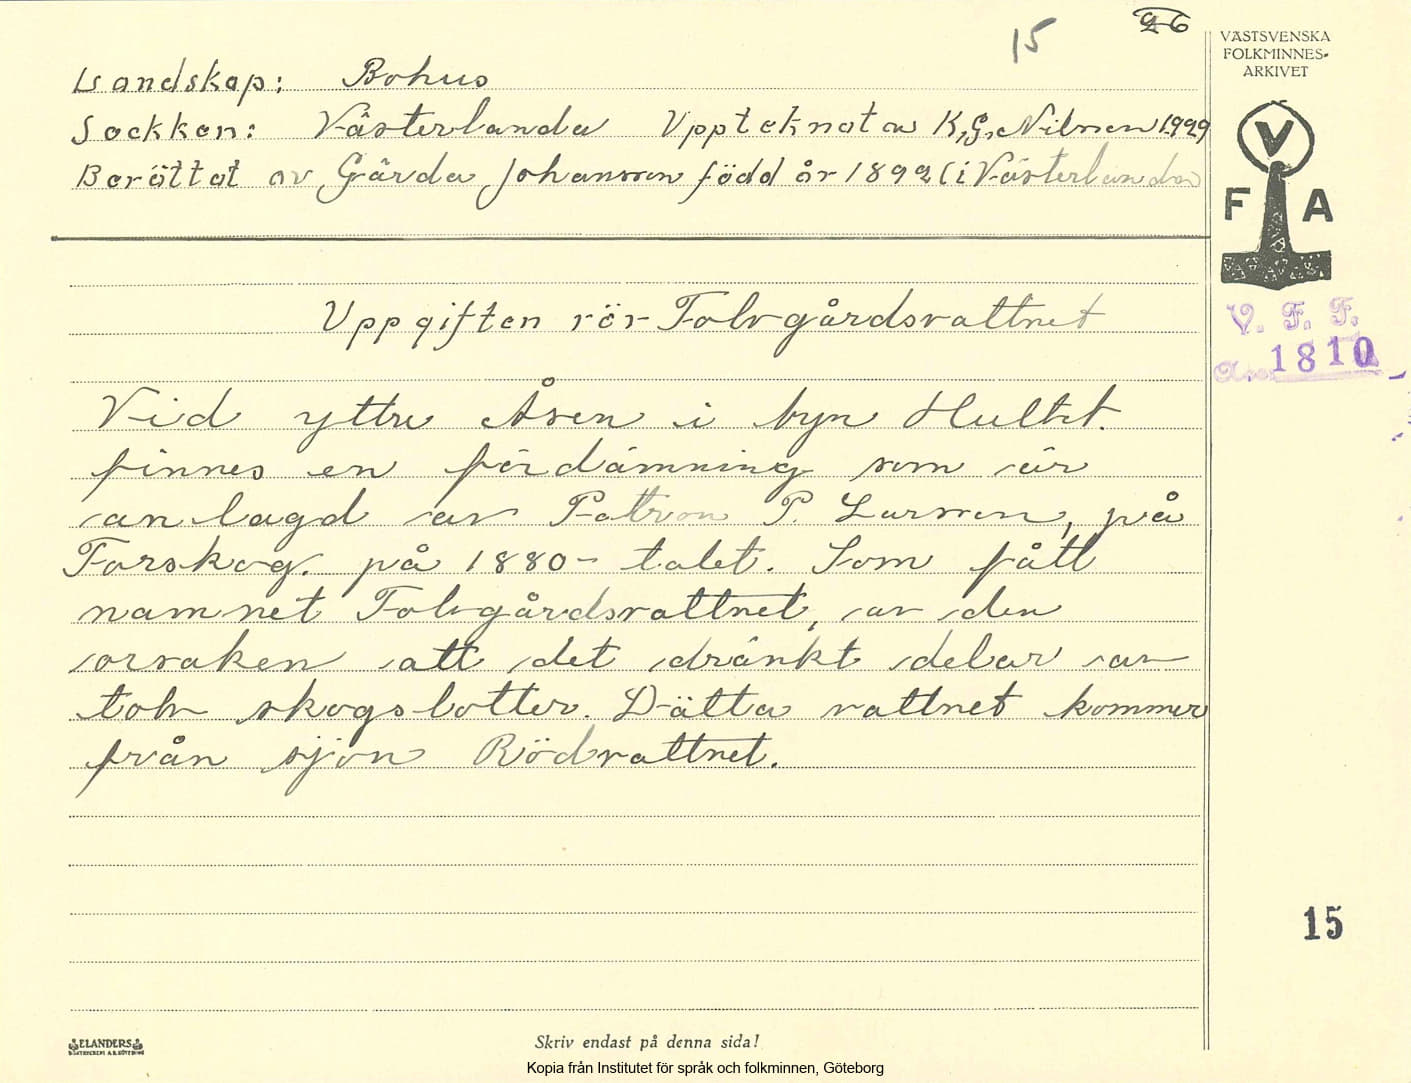 15
26
VÄSTSVENSKA
FOLKMINNES-
ARKIVET
V
F A
Landskap: Bohus
Sockken: Västerlanda Uppteknat av K,G, Nilsson 1929
Berättat av Gärda Johansson född år 1892 (i Västerlanda
V. F. F.
Acc. 1810
Uppgiften rör Tolvgårdsvattnet
Vid yttre Åsen i byn Hultet.
finnes en fördämning som är
anlagd av Patron P. Larsson, på
Forskog. på 1880-talet. Som fått
namnet Tolvgårdsvattnet, av den
orsaken att det dränkt delar av
tolv skogslotter. Dätta vattnet kommer
från sjön Rödvattnet.
15
ELANDERS
BOKTRYCKERI A.B. GÖTEBORG
Skriv endast på denna sida!
Kopia från Institutet för språk och folkminnen, Göteborg